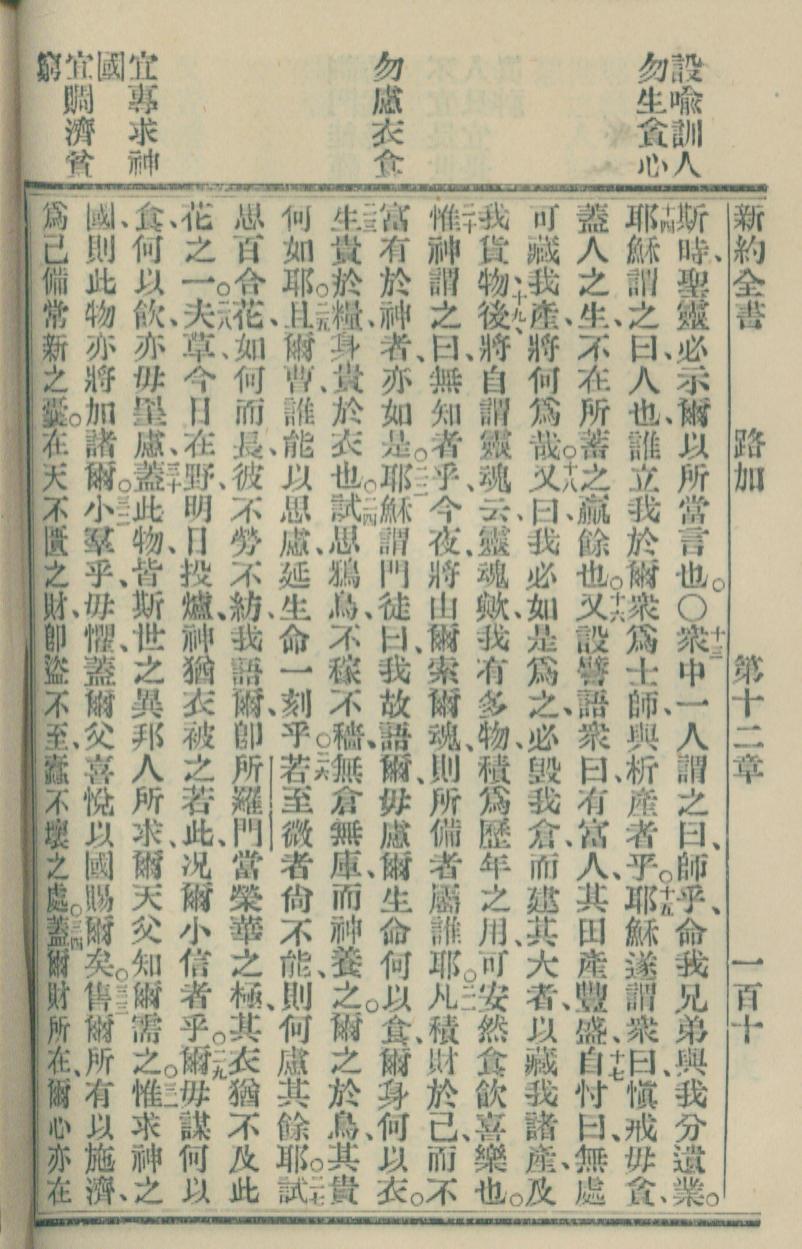 設喩訓人
勿生貪心
勿慮衣食
宜專求神
國
宜賙濟貧
窮
新約全書 路加 第十二章 一百十
斯時、聖靈必示爾以所當言也。〇十三衆中一人謂之曰、師乎、命我兄弟與我分遺業。
十四耶穌謂之曰、人也、誰立我於爾衆爲士師、與析產者乎。十五耶穌遂謂衆曰、愼戒毋貪、
蓋人之生、不在所蓄之贏餘也。十六又設譬語衆曰、有富人、其田產豐盛、十七自忖曰、無處
可藏我產、將何爲哉。十八又曰、我必如是爲之、必毀我倉而建其大者、以藏我諸產、及
我貨物、十九後將自謂靈魂云、靈魂歟、我有多物、積爲歷年之用、可安然食飮喜樂也。
二十惟神謂之曰、無知者乎、今夜、將由爾索爾魂、則所備者屬誰耶。二一凡積財於己、而不
富有於神者、亦如是。二二耶穌謂門徒曰、我故語爾、毋慮爾生命何以食、爾身何以衣。
二三生貴於糧、身貴於衣也。二四試思鴉鳥、不稼不穡、無倉無庫、而神養之。爾之於鳥、其貴
何如耶。二五且爾曹誰能以思慮、延生命一刻乎。二六若至微者尙不能、則何慮其餘耶。二七試
思百合花、如何而長、彼不勞不紡、我語爾、卽所羅門當榮華之極、其衣猶不及此
花之一。二八夫草、今日在野、明日投爐、神猶衣被之若此、況爾小信者乎。二九爾毋謀何以
食、何以飮、亦毋罣慮、三十蓋此物、皆斯世之異邦人所求、爾天父知爾需之。三一惟求神之
國、則此物亦將加諸爾。三二小羣乎、毋懼、蓋爾父喜悅以國賜爾矣。三三售爾所有以施濟、
爲己備常新之囊。在天不匱之財、卽盜不至、蠹不壞之處。三四蓋爾財所在、爾心亦在